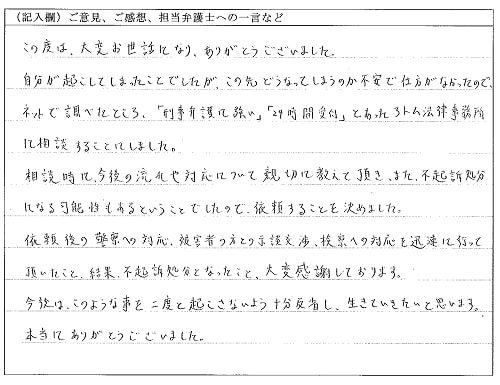 (記入欄) ご意見、ご感想、担当弁護士への一言など
この度は、大変お世話になり、ありがとうございました。
自分が起こしてしまったことでしたが、この先どうなってしまうのか不安で仕方がなかったので、
ネットで調べたところ、「刑事弁護に強い」「24時間受付」とあったアトム法律事務所
に相談することにしました。
相談時に、今後の流れや対応について親切に教えて頂き、また、不起訴処分
になる可能性もあるということでしたので、依頼することを決めました。
依頼後の警察への対応、被害者の方との示談交渉、検察への対応を迅速に行って
頂いたこと、結果、不起訴処分となったこと、大変感謝しております。
今後は、このような事を二度と起こさないよう十分反省し、生きていきたいと思います。
本当にありがとうございました。